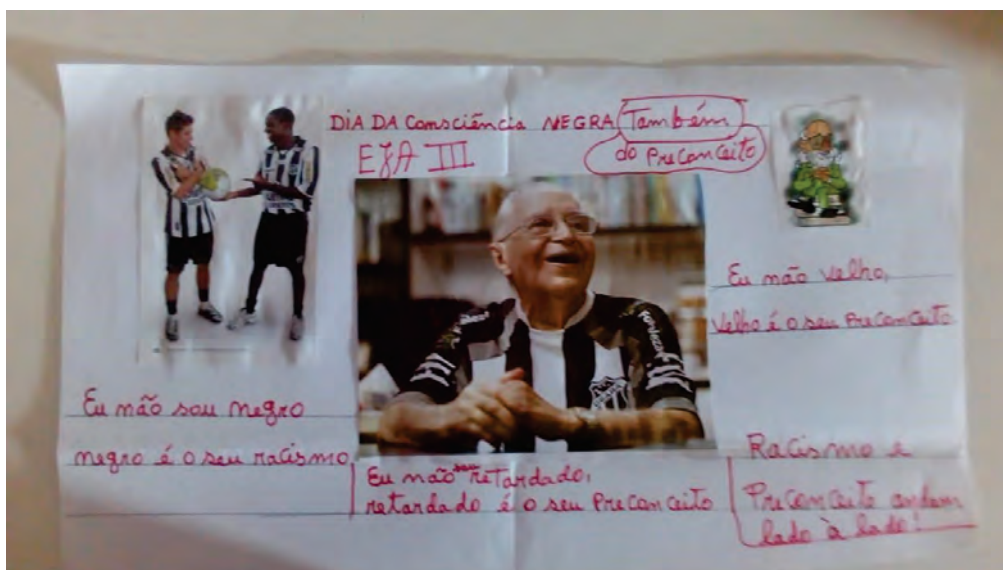 DIA DA Consciência NEGRA Também
do Preconceito
EJA III
Eu não velho,
Velho é o seu Preconceito
Eu não sou negro
negro é o seu racismo
Eu não sou retardado,
retardado é o seu Preconceito
Racismo e
Preconceito andam
lado à lado!